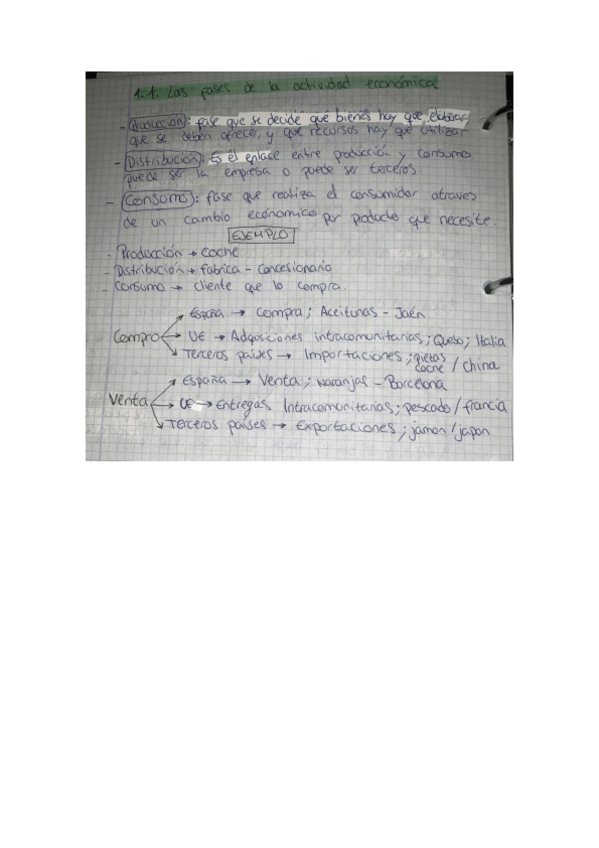 1.1. Las fases de la actividad económica
- Producción: fase que se decide qué bienes hay que elaborar,
que se deben ofrecer, y que recursos hay que utilizar
- Distribución: Es el enlace entre producción y consumo
puede ser la empresa o puede ser terceros.
- Consumo: fase que realiza el consumidor atraves
de un cambio económico por producto que necesite.
EJEMPLO
- Producción → coche
- Distribución → fabrica - concesionario
- Consumo → cliente que lo compra.
España → Compra; Aceitunas - Jaén
Compro → UE → Adqosiciones intracomunitarias; Queso; Italia
Terceros países → Importaciones; piezas coche / China
España → Venta; Naranjas - Barcelona
Venta → UE → Entregas Intracomunitarias; pescado / francia
Terceros países → Exportaciones; jamon / japon